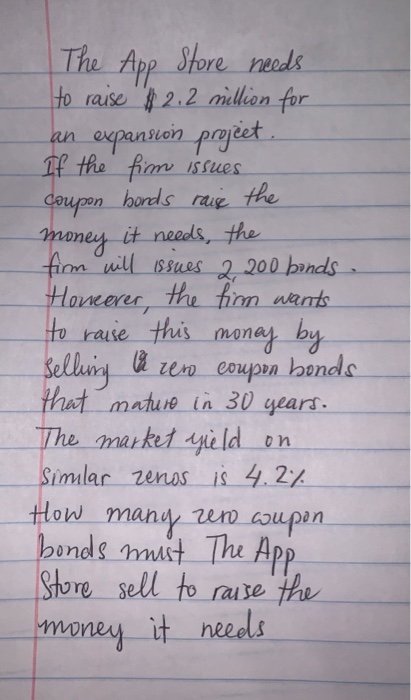 The App Store needs
to raise $2.2 million for
an expansion project.
If the firm issues
coupon bonds raise the
money it needs, the
firm will issues 2,200 bonds.
However, the firm wants
to raise this money by
selling zero coupon bonds
that mature in 30 years.
The market yield on
similar zeros is 4.2%
How many zero coupon
bonds must The App
Store sell to raise the
money it needs